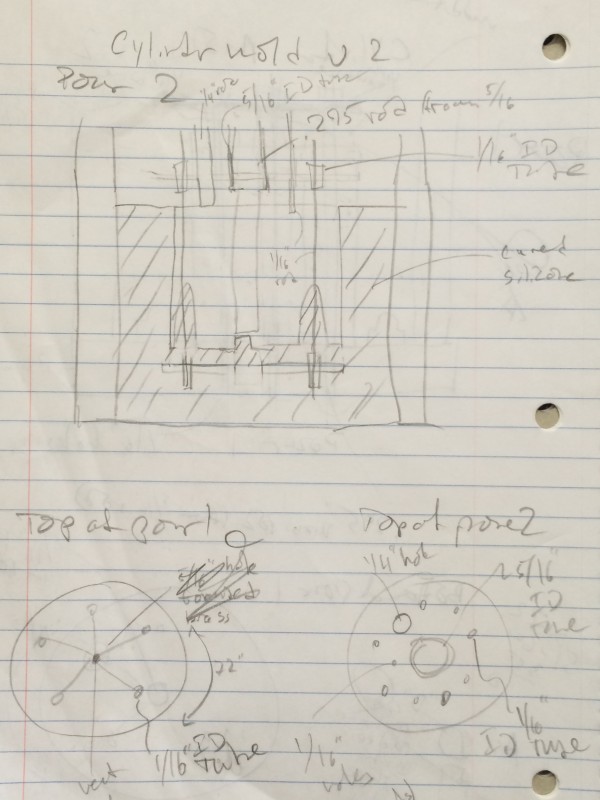 Cylinder mold v 2
Pour 2
5/16" ID tube
.295 rod from 5/16
1/16" ID
TUBE
1/16"
rod
cured
silicone
Top at pour 1
Top at pour 2
1/4" hole
5/16"
ID
tube
.22"
1/16" ID
TUBE
vent
1/16"
holes
1/16"
ID TUBE